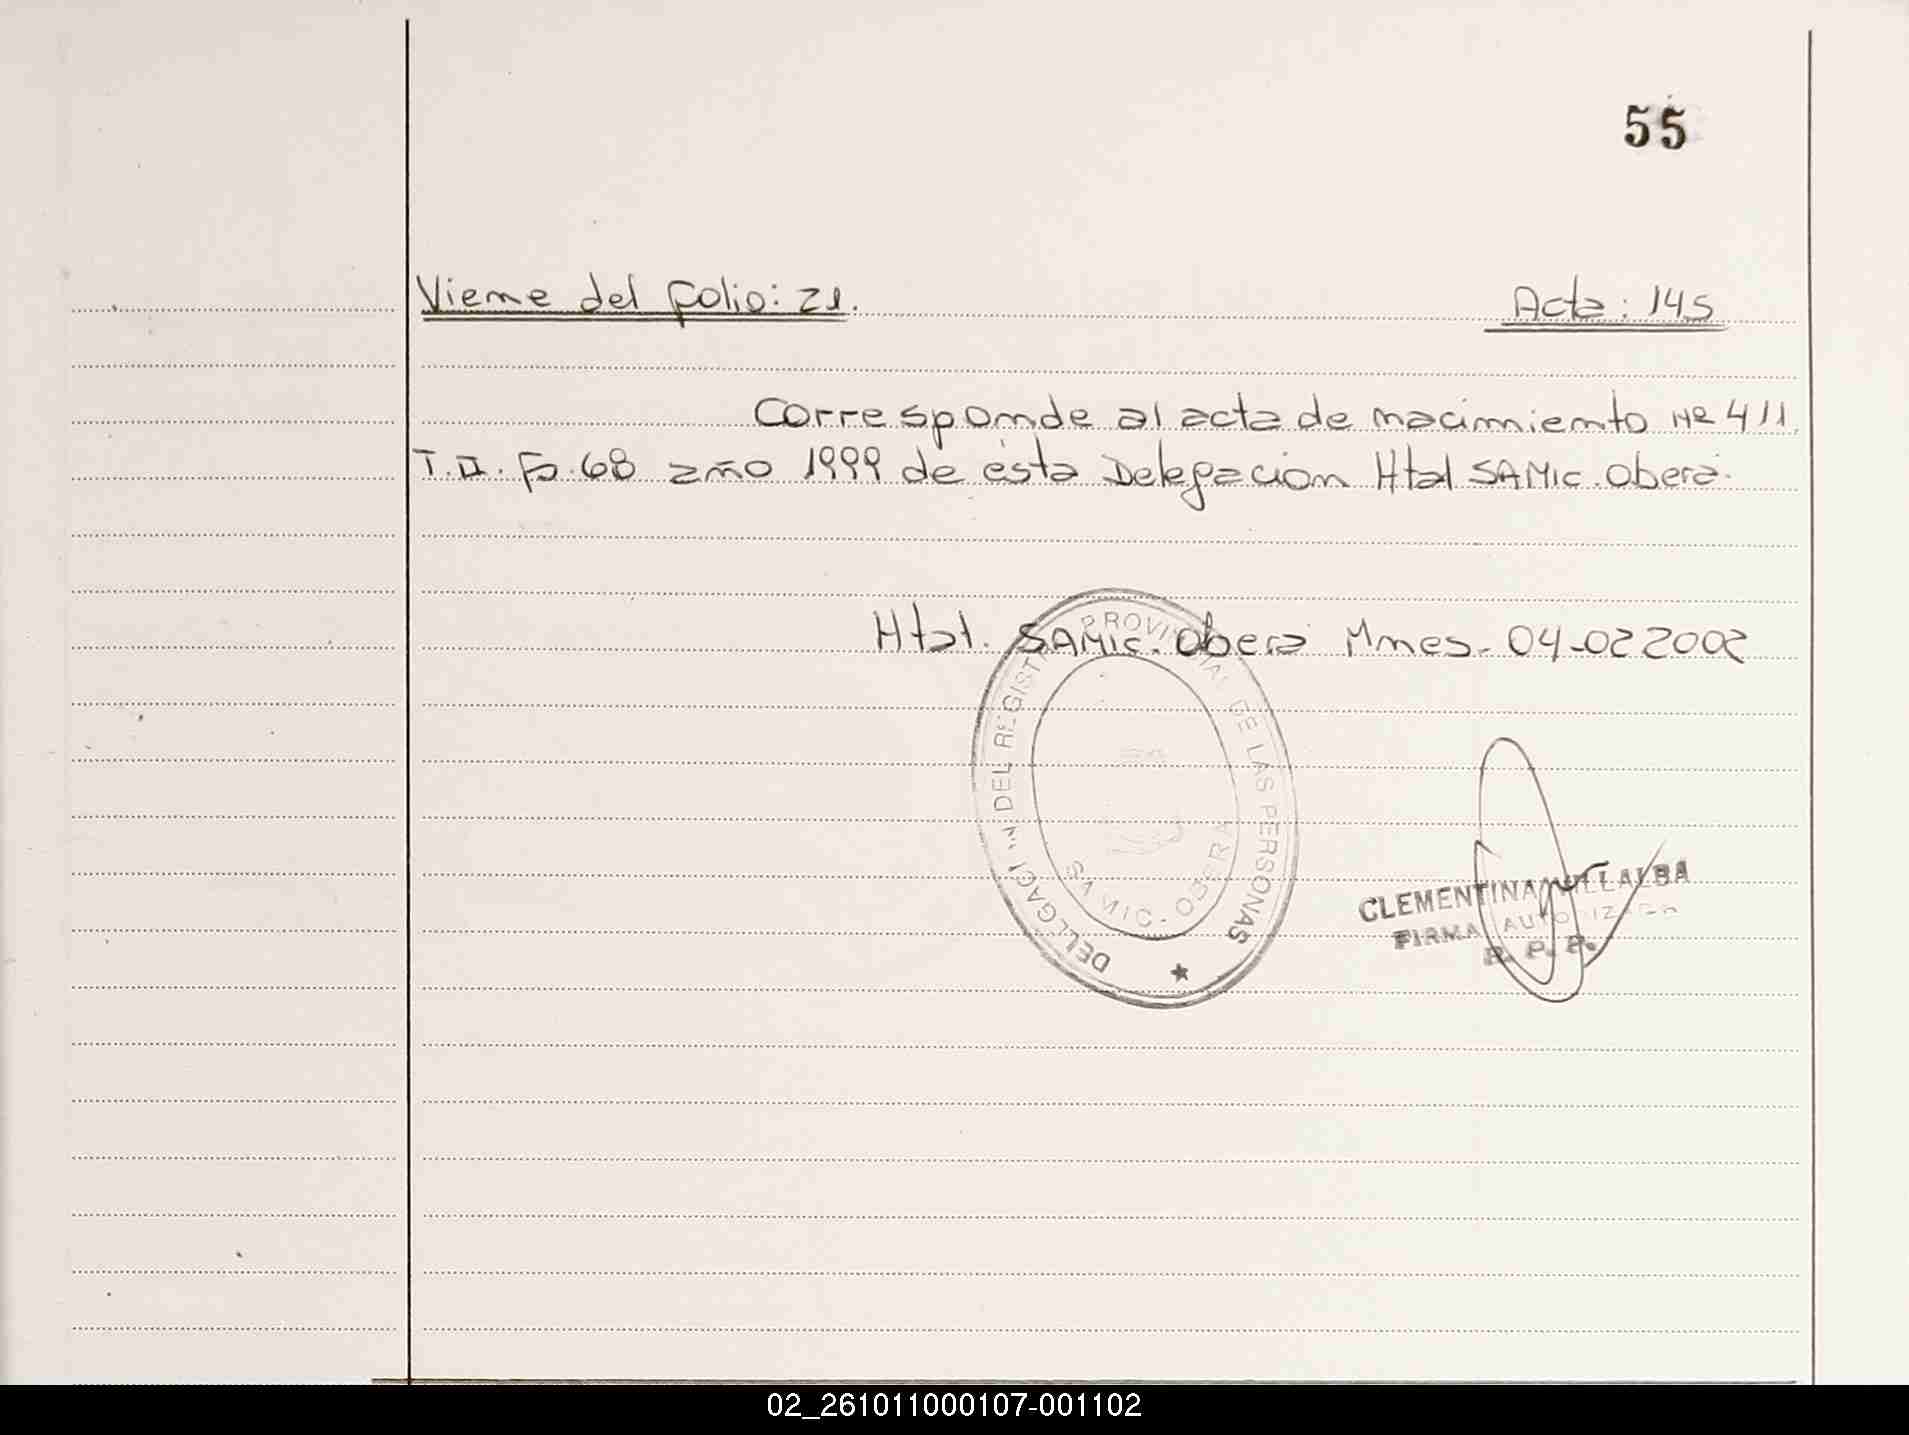 55
Viene del folio: 21. Acta: 145
Corresponde al acta de nacimiento Nº 411
T.II. Fo. 68 año 1999 de ésta Delegación Htal SAMIC. Oberá.
Htal. SAMIC. Oberá Mnes. 04-02 2002
DELEGACION DEL REGISTRO PROVINCIAL DE LAS PERSONAS
SAMIC - OBERA
CLEMENTINA VILLALBA
FIRMA AUTORIZADA
R. P. P.
02_261011000107-001102